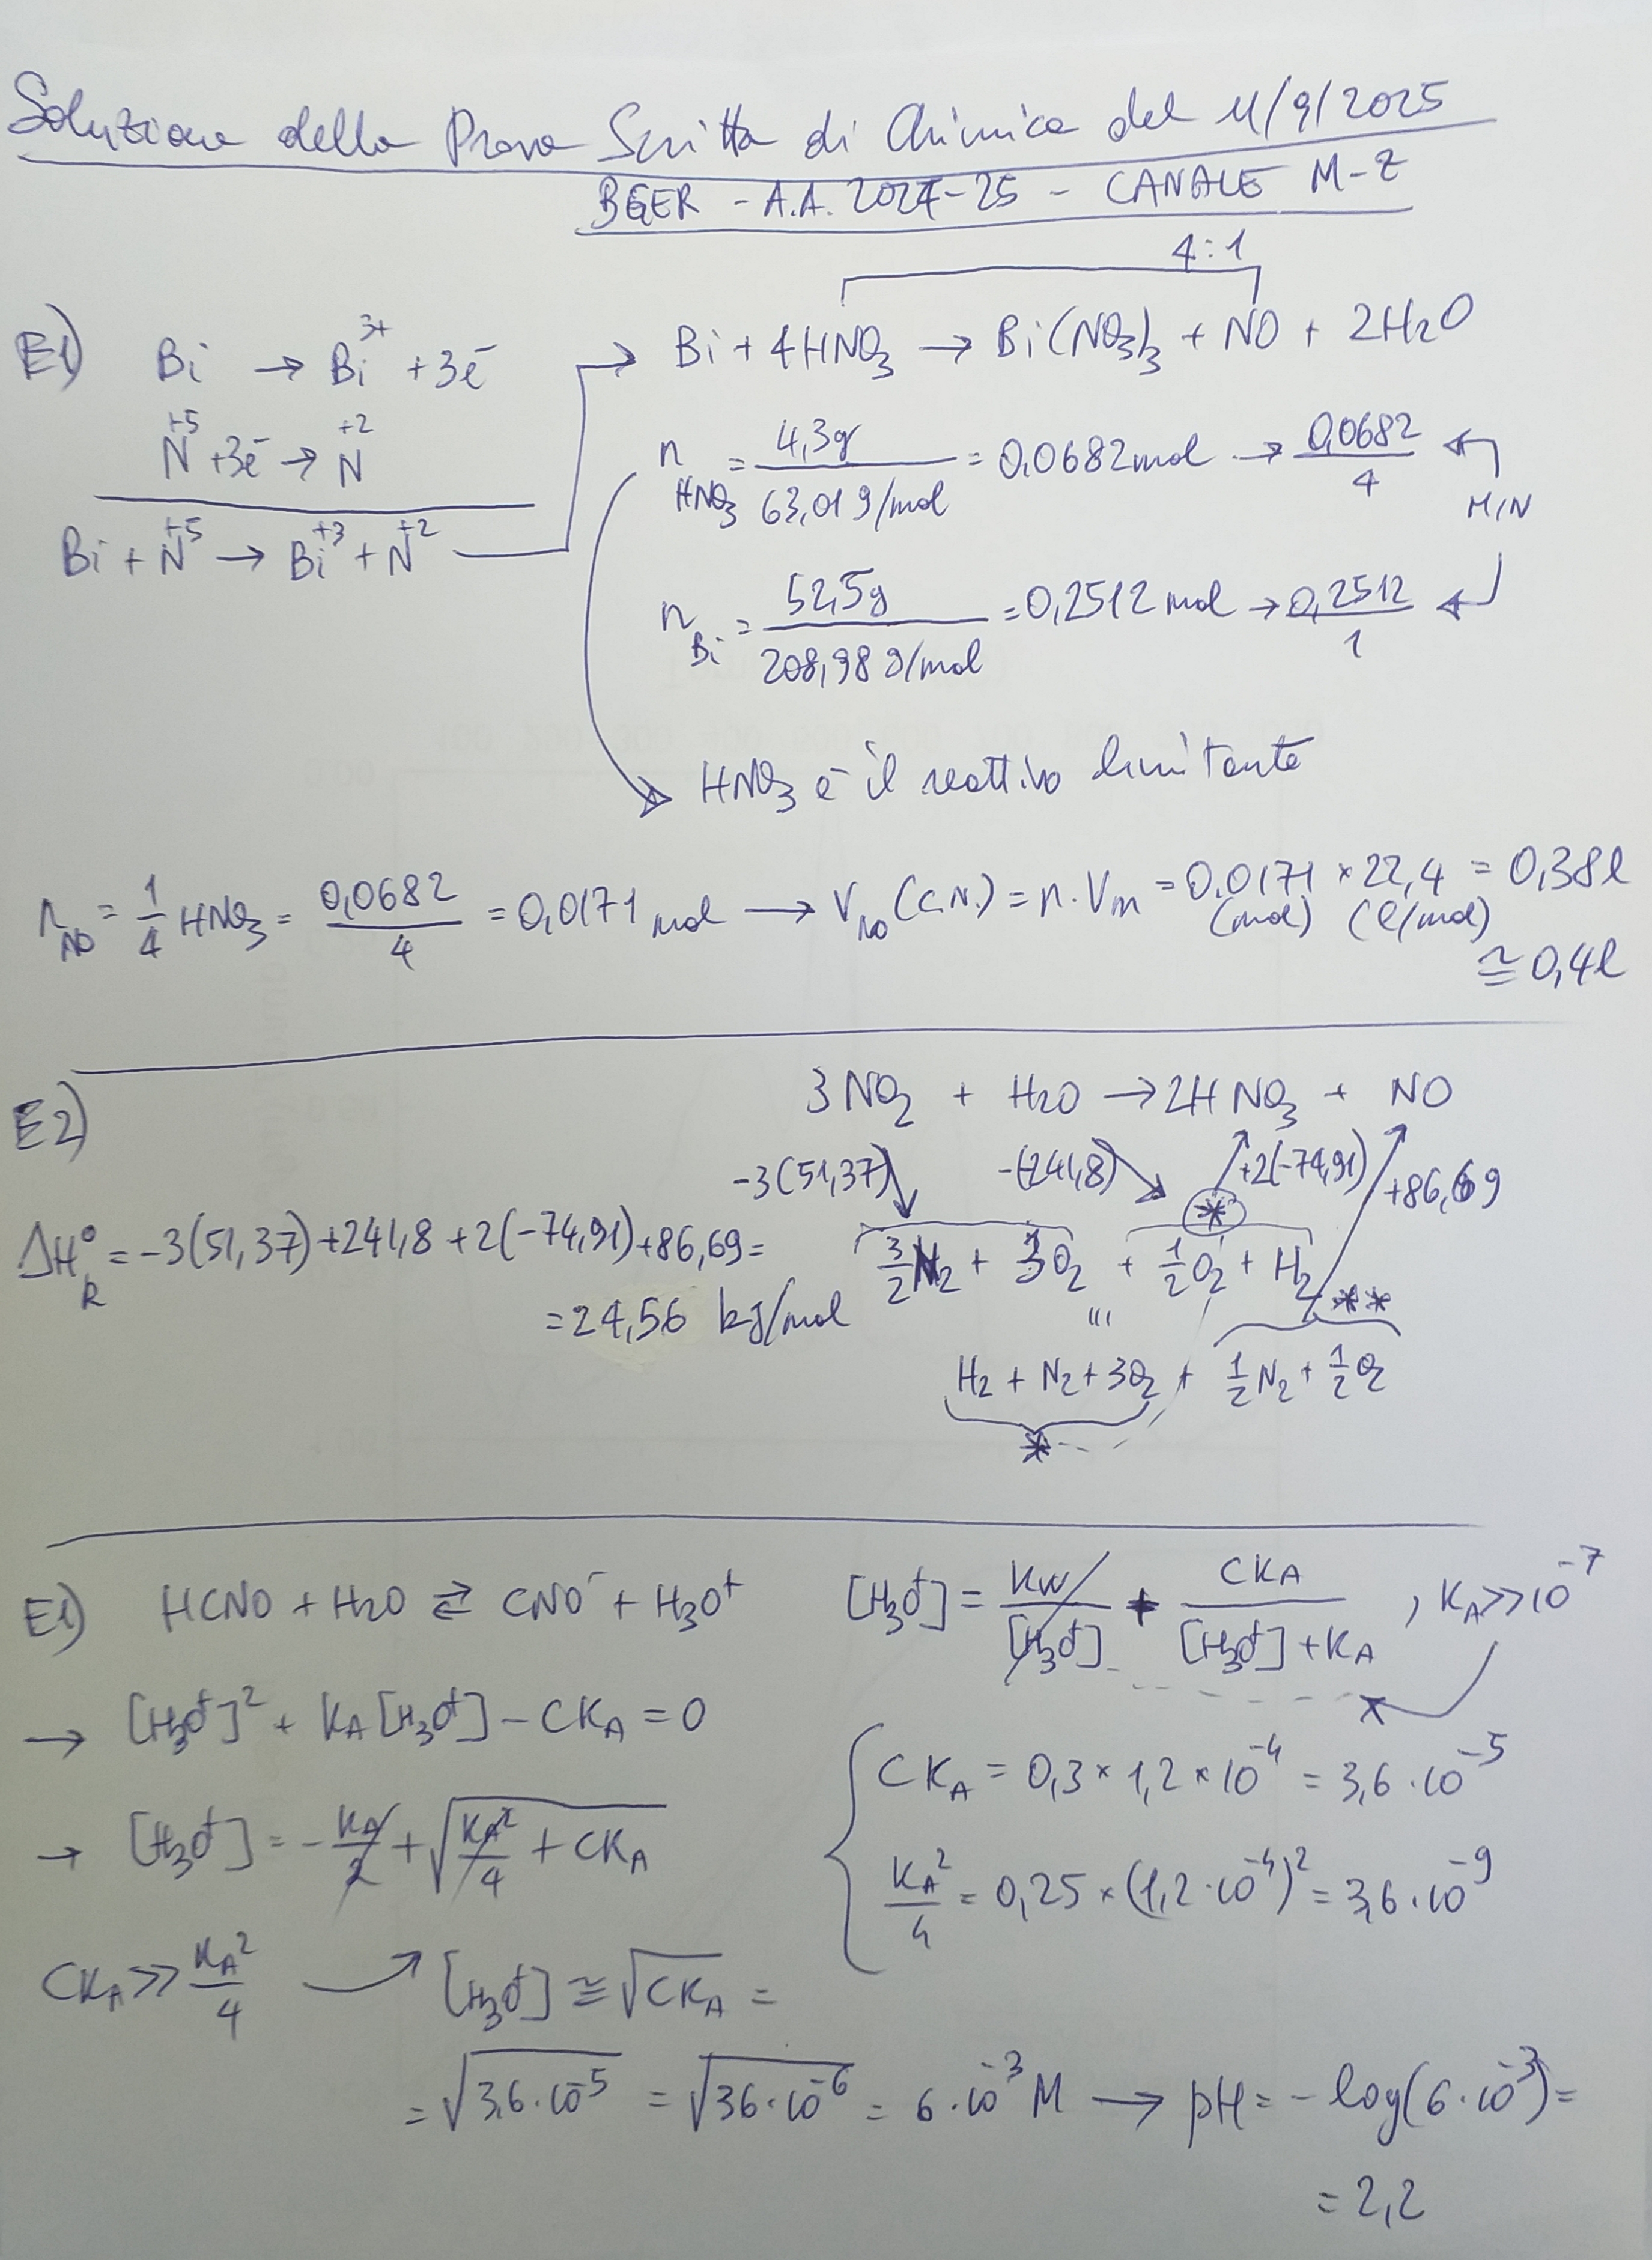 Soluzione della Prova Scritta di Chimica del 11/9/2025
BGER - A.A. 2024-25 - CANALE M-Z
4:1
E1) Bi → Bi³⁺ + 3e⁻
Bi + 4HNO₃ → Bi(NO₃)₃ + NO + 2H₂O
N⁺⁵ + 3e⁻ → N⁺²
n HNO₃ = 4,3g / 63,01 g/mol = 0,0682 mol → 0,0682 / 4
MIN
Bi + N⁺⁵ → Bi⁺³ + N⁺²
n Bi = 52,5g / 208,98 g/mol = 0,2512 mol → 0,2512 / 1
HNO₃ è il reattivo limitante
n NO = 1/4 HNO₃ = 0,0682 / 4 = 0,0171 mol → V NO (C.N.) = n · Vm = 0,0171 × 22,4 = 0,38 l
(mol) (l/mol)
≅ 0,4 l
E2) 3NO₂ + H₂O → 2HNO₃ + NO
-3(51,37) -(-241,8) +2(-74,91) +86,69
*
ΔH°R = -3(51,37) + 241,8 + 2(-74,91) + 86,69 =
3/2 N₂ + 3O₂ + 1/2 O₂ + H₂
= 24,56 kJ/mol
**
H₂ + N₂ + 3O₂ + 1/2 N₂ + 1/2 O₂
*
E1) HCNO + H₂O ⇄ CNO⁻ + H₃O⁺ [H₃O⁺] = Kw / [H₃O⁺] + CKA / [H₃O⁺] + KA , KA >> 10⁻⁷
→ [H₃O⁺]² + KA [H₃O⁺] - CKA = 0
CKA = 0,3 × 1,2 × 10⁻⁴ = 3,6 · 10⁻⁵
→ [H₃O⁺] = - KA/2 + √(KA²/4 + CKA)
KA²/4 = 0,25 × (1,2 · 10⁻⁴)² = 3,6 · 10⁻⁹
CKA >> KA²/4 [H₃O⁺] ≅ √CKA =
= √3,6 · 10⁻⁵ = √36 · 10⁻⁶ = 6 · 10⁻³ M → pH = - log(6 · 10⁻³) =
= 2,2